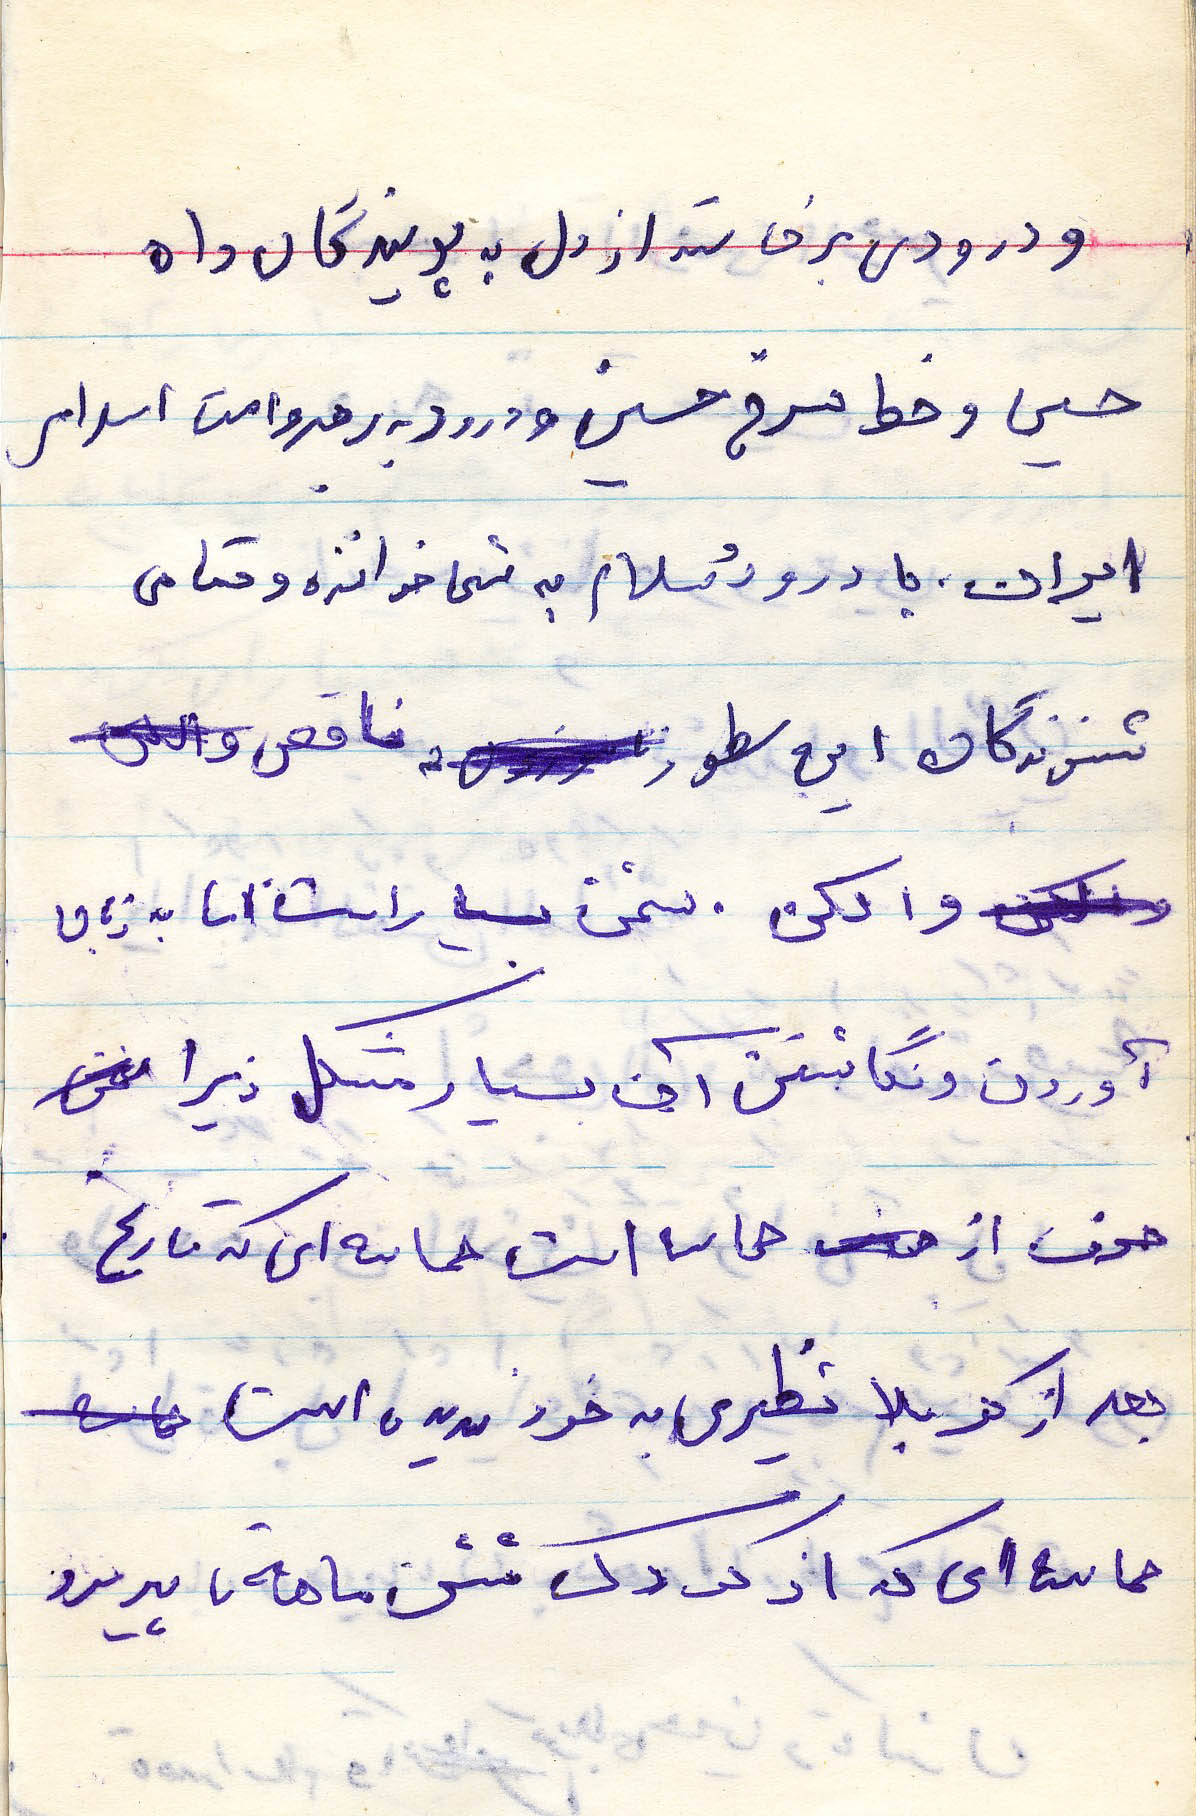 و درودی برخاسته از دل به پویندگان راه
حسین و خط سرخ حسین و درود به رهبر و امت اسلامی
ایران. با درود و سلام به شما خواننده و تمامی
شنوندگان این سطور ناقص
و الکن. سخن بسیار است اما به زبان
آوردن و نگاشتن آن بسیار مشکل زیرا
حرف از حماسه است حماسه ای که تاریخ
بعد از کربلا نظیری به خود ندیده است
حماسه ای که از کودک شش ماهه تا پیرمرد